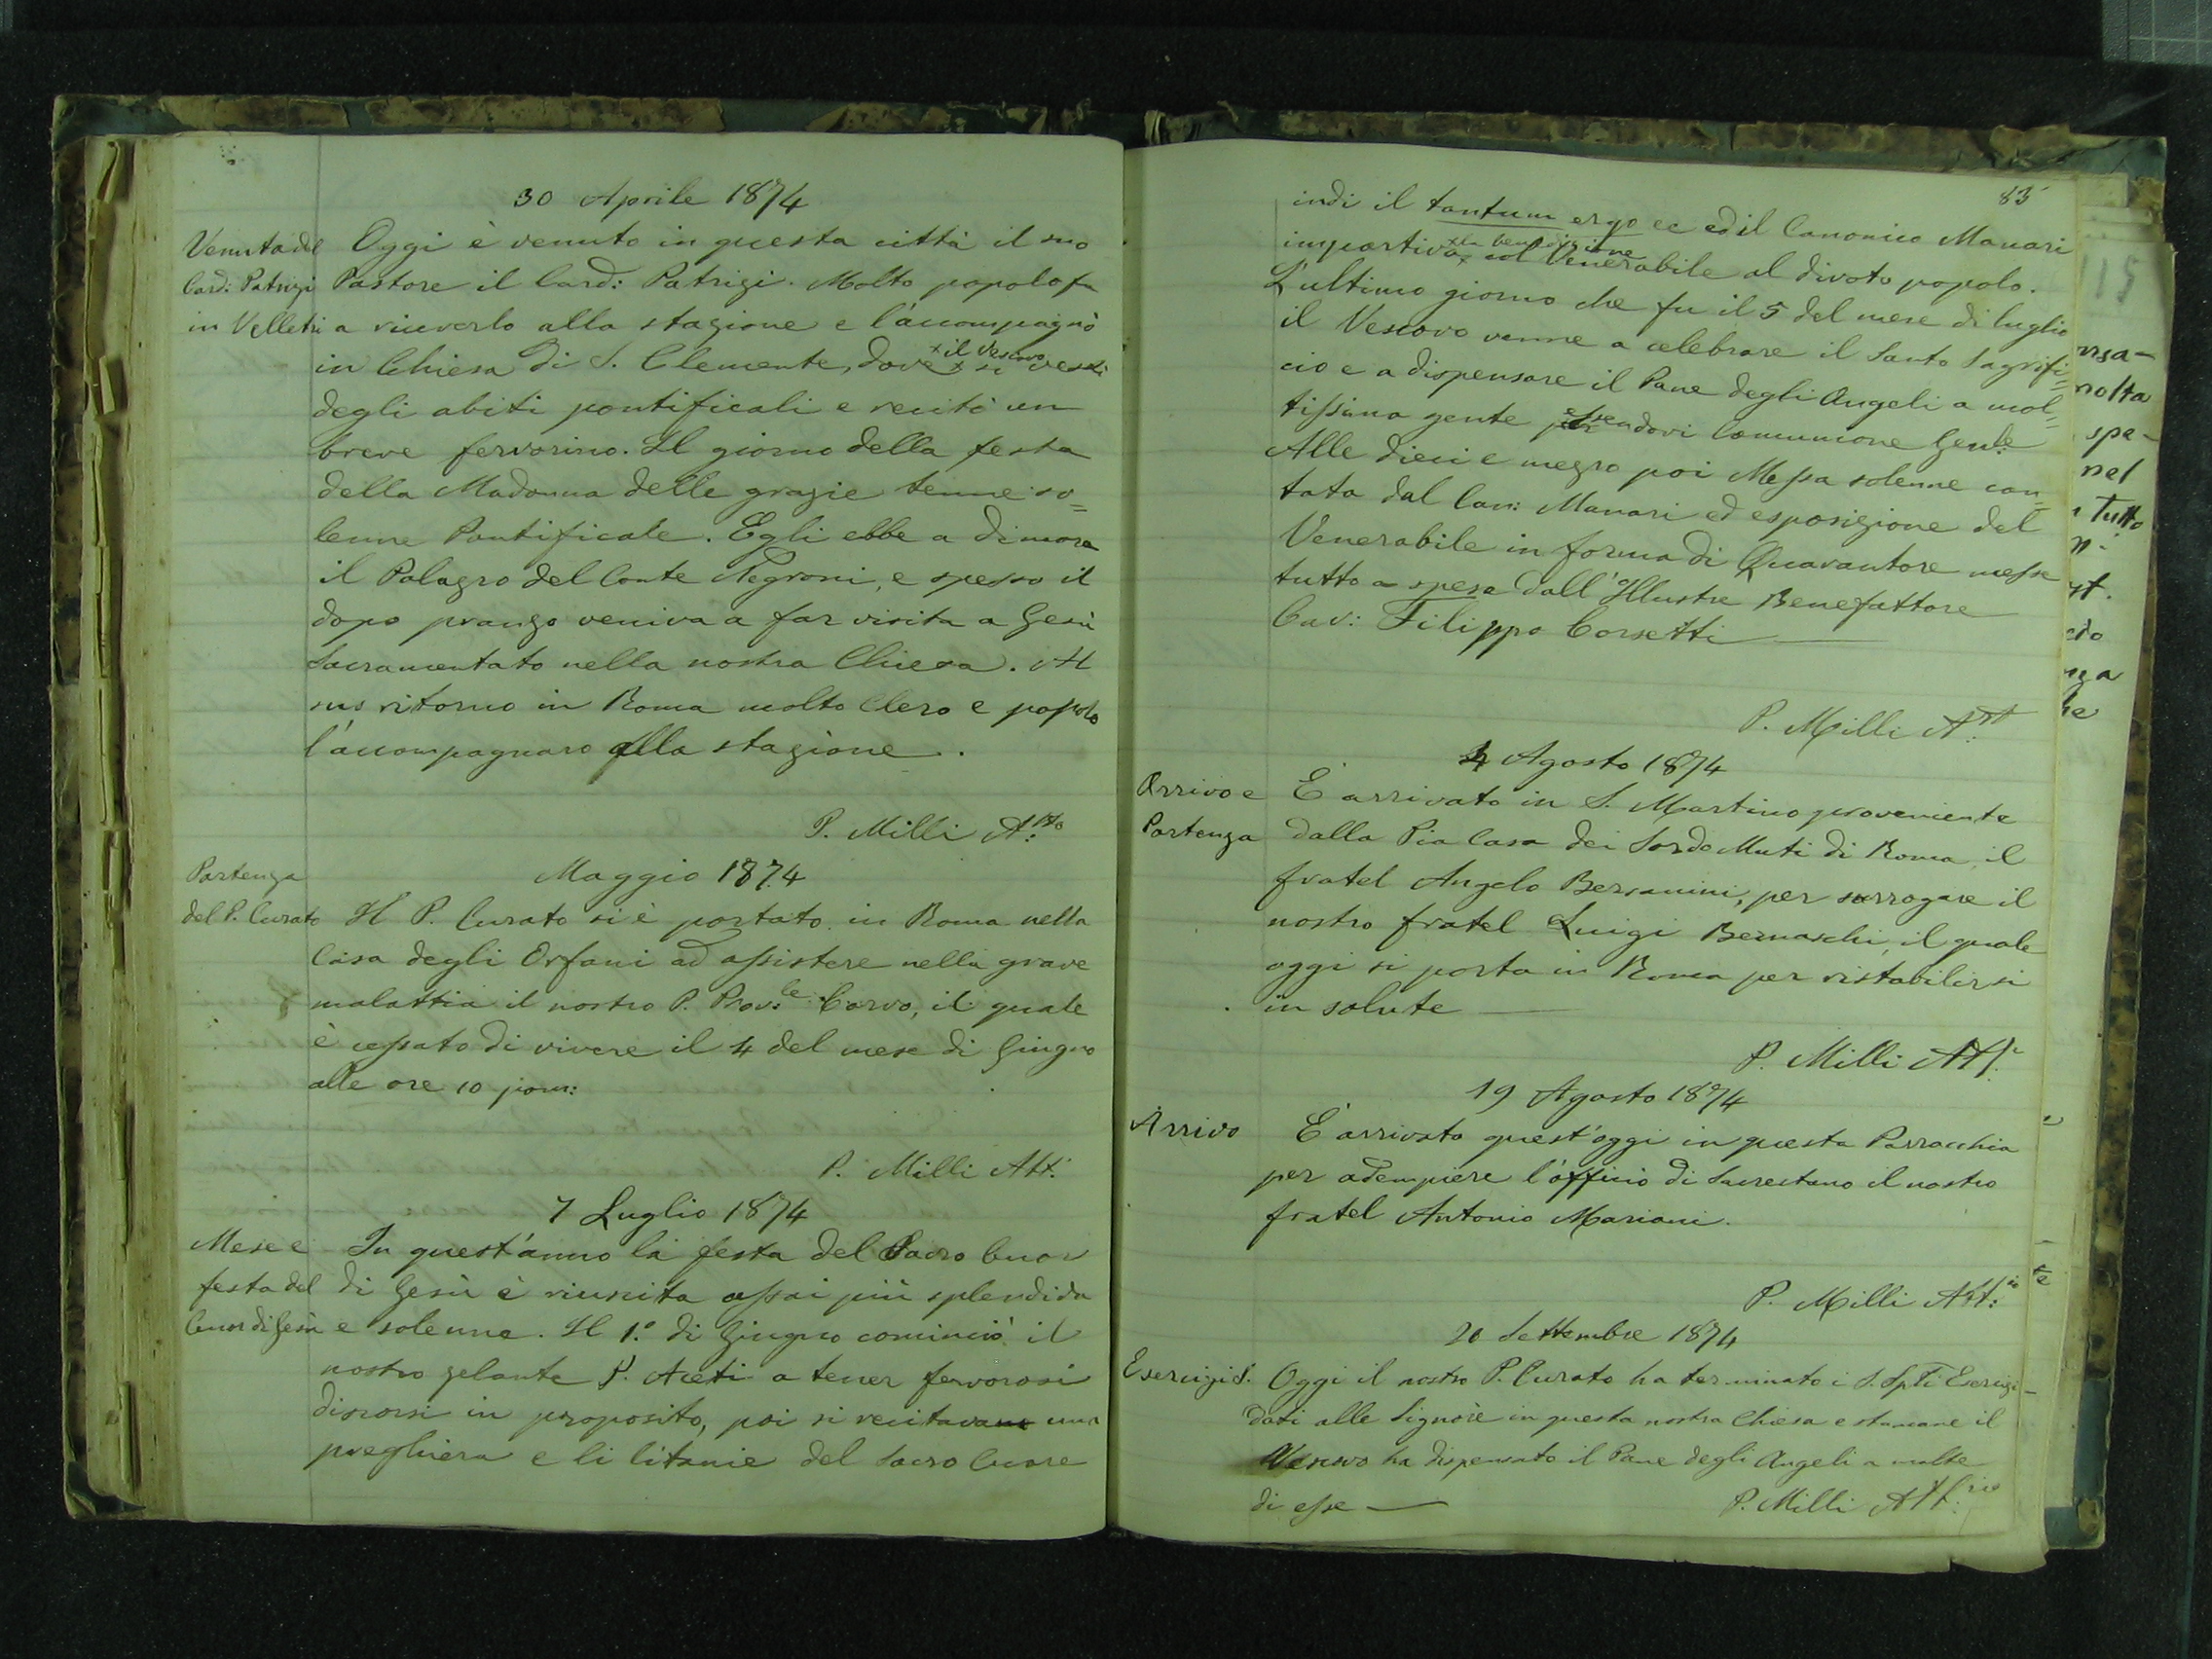 30 Aprile 1874
Venuta del
Card: Patrizi
in Velletri
Oggi è venuto in questa città il suo
Pastore il Card: Patrizi. Molto popolo fu
a riceverlo alla stazione e l'accompagnò
in Chiesa di S. Clemente, dove × il Vescovo si vestì
degli abiti pontificali e recitò un
breve fervorino. Il giorno della festa
della Madonna delle grazie tenne so=
lenne Pontificale. Egli ebbe a dimora
il Palazzo del Conte Negroni, e spesso il
dopo pranzo veniva a far visita a Gesù
Sacramentato nella nostra Chiesa. Al
suo ritorno in Roma molto Clero e popolo
l'accompagnaro alla stazione.
P. Milli A:rio
Partenza
del P. Curato
Maggio 1874
Il P. Curato si è portato in Roma nella
Casa degli Orfani ad assistere nella grave
malattia il nostro P. Prov:le Corvo, il quale
è cessato di vivere il 4 del mese di Giugno
alle ore 10 pom:
P. Milli Att:
7 Luglio 1874
Mese e
festa del
Cuor di Gesù
In quest'anno la festa del Sacro Cuor
di Gesù è riuscita assai più splendida
e solenne. Il 1.° di Giugno cominciò il
nostro zelante P. Aceti a tener fervorosi
discorsi in proposito, poi si recitava una
preghiera e li litanie del Sacro Cuore
83
indi il tantum ergo ec ed il Canonico Manari
impartiva × la benedizione col Venerabile al divoto popolo.
L'ultimo giorno che fu il 5 del mese di luglio
il Vescovo venne a celebrare il Santo Sagrifi=
cio e a dispensare il Pane degli Angeli a mol=
tissima gente essendovi Comunione Gen:le
Alle dieci e mezzo poi Messa solenne can=
tata dal Can: Manari ed esposizione del
Venerabile in forma di Quarantore messe
tutto a spese dall'Illustre Benefattore
Cav: Filippo Corsetti
P. Milli A:
4 Agosto 1874
Arrivo e
Partenza
È arrivato in S. Martino proveniente
dalla Pia Casa dei Sordo Muti di Roma il
fratel Angelo Bersanini, per surrogare il
nostro fratel Luigi Bernaschi, il quale
oggi si porta in Roma per ristabilirsi
in salute
P. Milli Att.
19 Agosto 1874
Arrivo
È arrivato quest'oggi in questa Parrocchia
per adempiere l'officio di Sacrestano il nostro
fratel Antonio Mariani.
P. Milli Att:io
20 Settembre 1874
Esercizi S.
Oggi il nostro P. Curato ha terminato i S. Spti Esercizi
dati alle Signore in questa nostra Chiesa e stamane il
Vescovo ha dispensato il Pane degli Angeli a molte
di esse
P. Milli Att:rio